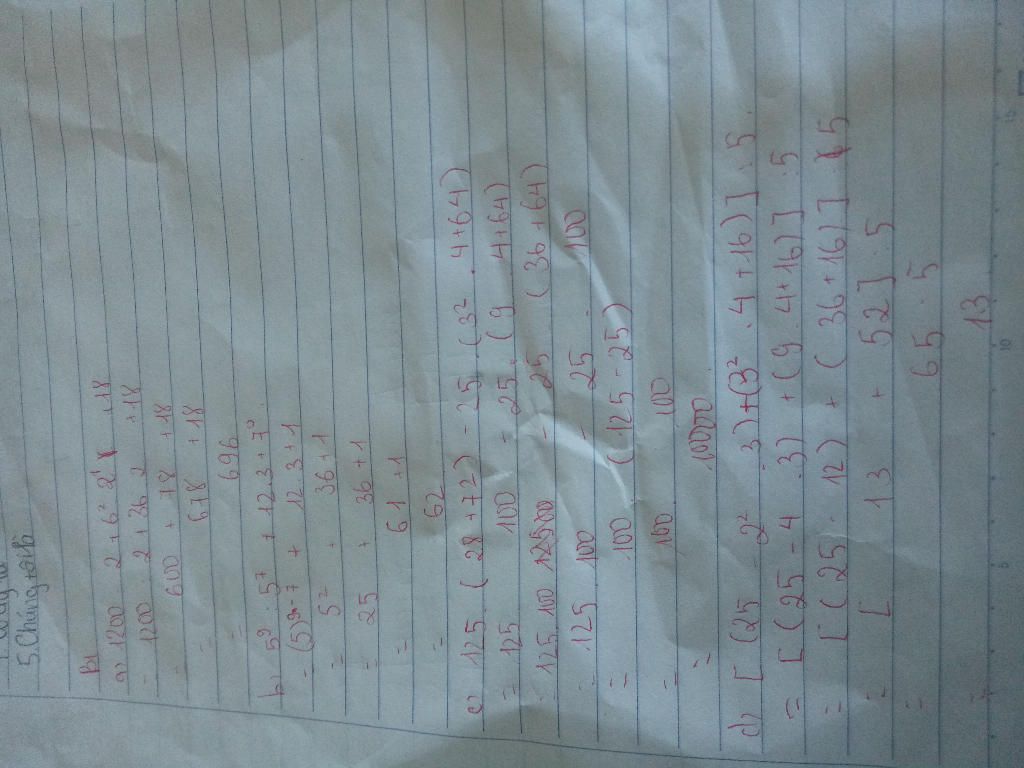 5.
B1
a) 1200 : 2 + 6² : 2¹ + 18
= 1200 : 2 + 36 : 2 + 18
= 600 + 78 + 18
= 678 + 18
= 696
b) 5⁹ : 5⁷ + 12 . 3 + 7⁰
= (5)⁹⁻⁷ + 12 . 3 + 1
= 5² + 36 + 1
= 25 + 36 + 1
= 61 + 1
= 62
c) 125 . (28 + 72) - 25 . (3² . 4 + 64)
= 125 . 100 - 25 . (9 . 4 + 64)
= 125 . 10 - 25 . (36 + 64)
= 125 . 100 - 25 . 100
= 100 . (125 - 25)
= 100 . 100
= 10000
d) [ (25 - 2² . 3) + (3² . 4 + 16) ] : 5
= [ (25 - 4 . 3) + (9 . 4 + 16) ] : 5
= [ (25 - 12) + (36 + 16) ] : 5
= [ 13 + 52 ] : 5
= 65 : 5
= 13